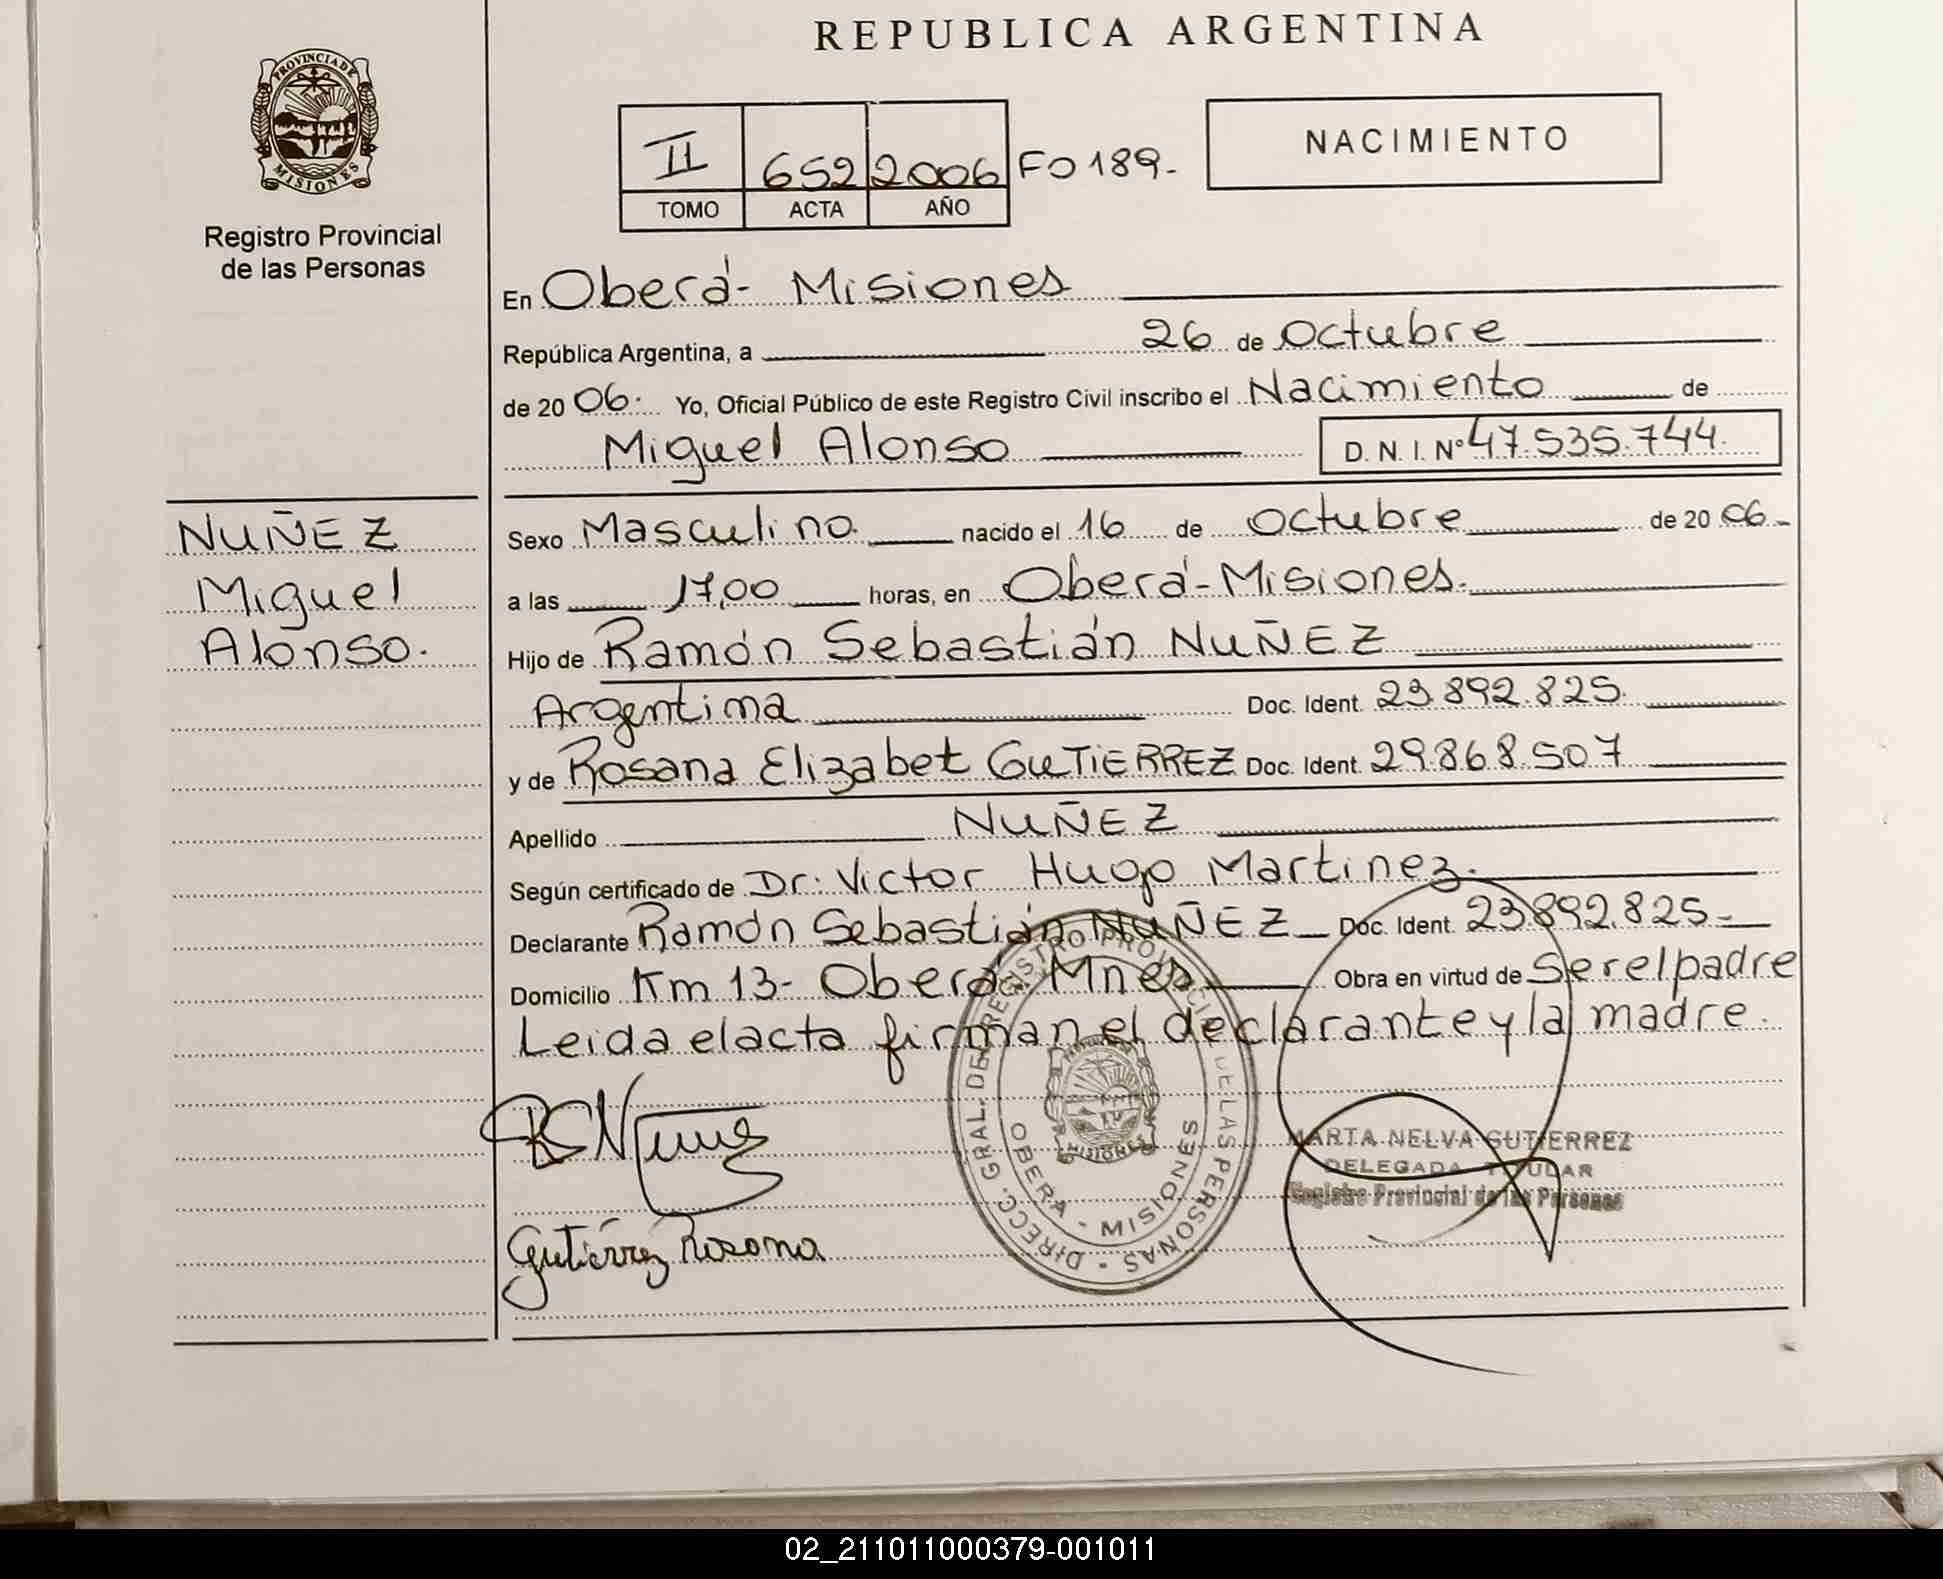 REPUBLICA ARGENTINA
PROVINCIA DE MISIONES
Registro Provincial
de las Personas
II 652 2006 FO 189.-
TOMO ACTA AÑO
NACIMIENTO
En Oberá - Misiones
República Argentina, a 26 de Octubre
de 20 06. Yo, Oficial Público de este Registro Civil inscribo el Nacimiento de
Miguel Alonso D.N.I. Nº 47.535.744.
NUÑEZ
Miguel
Alonso.
Sexo Masculino nacido el 16 de Octubre de 20 06.-
a las 17,00 horas, en Oberá - Misiones.
Hijo de Ramón Sebastián NUÑEZ
Argentina Doc. Ident. 23.892.825.
y de Rosana Elizabet GUTIERREZ Doc. Ident. 29.868.507
Apellido NUÑEZ
Según certificado de Dr. Victor Hugo Martinez.
Declarante Ramón Sebastián NUÑEZ Doc. Ident. 23.892.825.-
Domicilio Km 13 - Oberá - Mnes Obra en virtud de Ser el padre
Leida el acta firman el declarante y la madre.
DIRECC. GRAL. DE REGISTRO PROVINCIAL DE LAS PERSONAS
OBERA - MISIONES
MISIONES
MARTA NELVA GUTIERREZ
DELEGADA TITULAR
Registro Provincial de las Personas
Gutiérrez Rosana
02_211011000379-001011